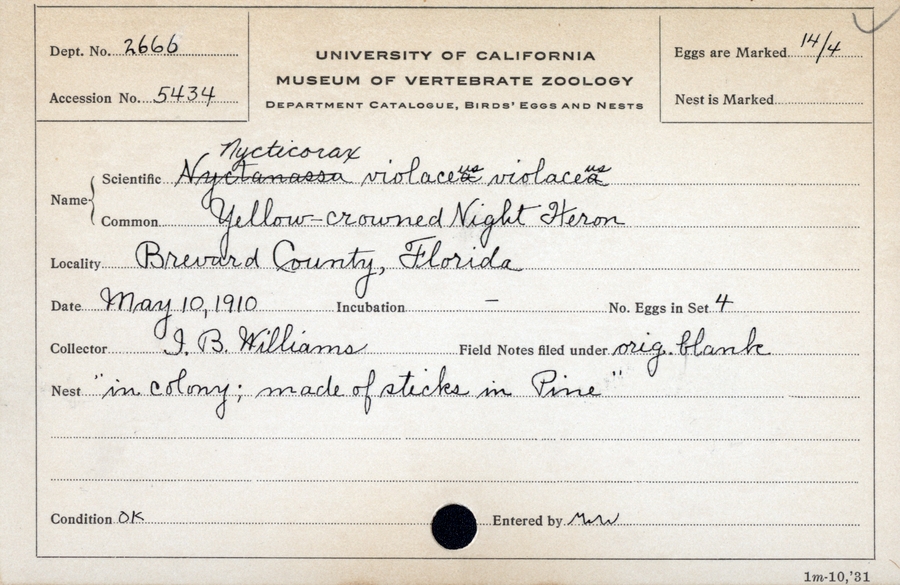 Dept. No. 2666
Accession No. 5434
UNIVERSITY OF CALIFORNIA
MUSEUM OF VERTEBRATE ZOOLOGY
DEPARTMENT CATALOGUE, BIRDS' EGGS AND NESTS
Eggs are Marked 14/4
Nest is Marked
Nycticorax
Name Scientific Nyctanassa violaceus violaceus
Common Yellow-crowned Night Heron
Locality Brevard County, Florida
Date May 10, 1910 Incubation – No. Eggs in Set 4
Collector I. B. Williams Field Notes filed under orig. blank
Nest "in colony; made of sticks in Pine"
Condition OK Entered by
1m-10,'31